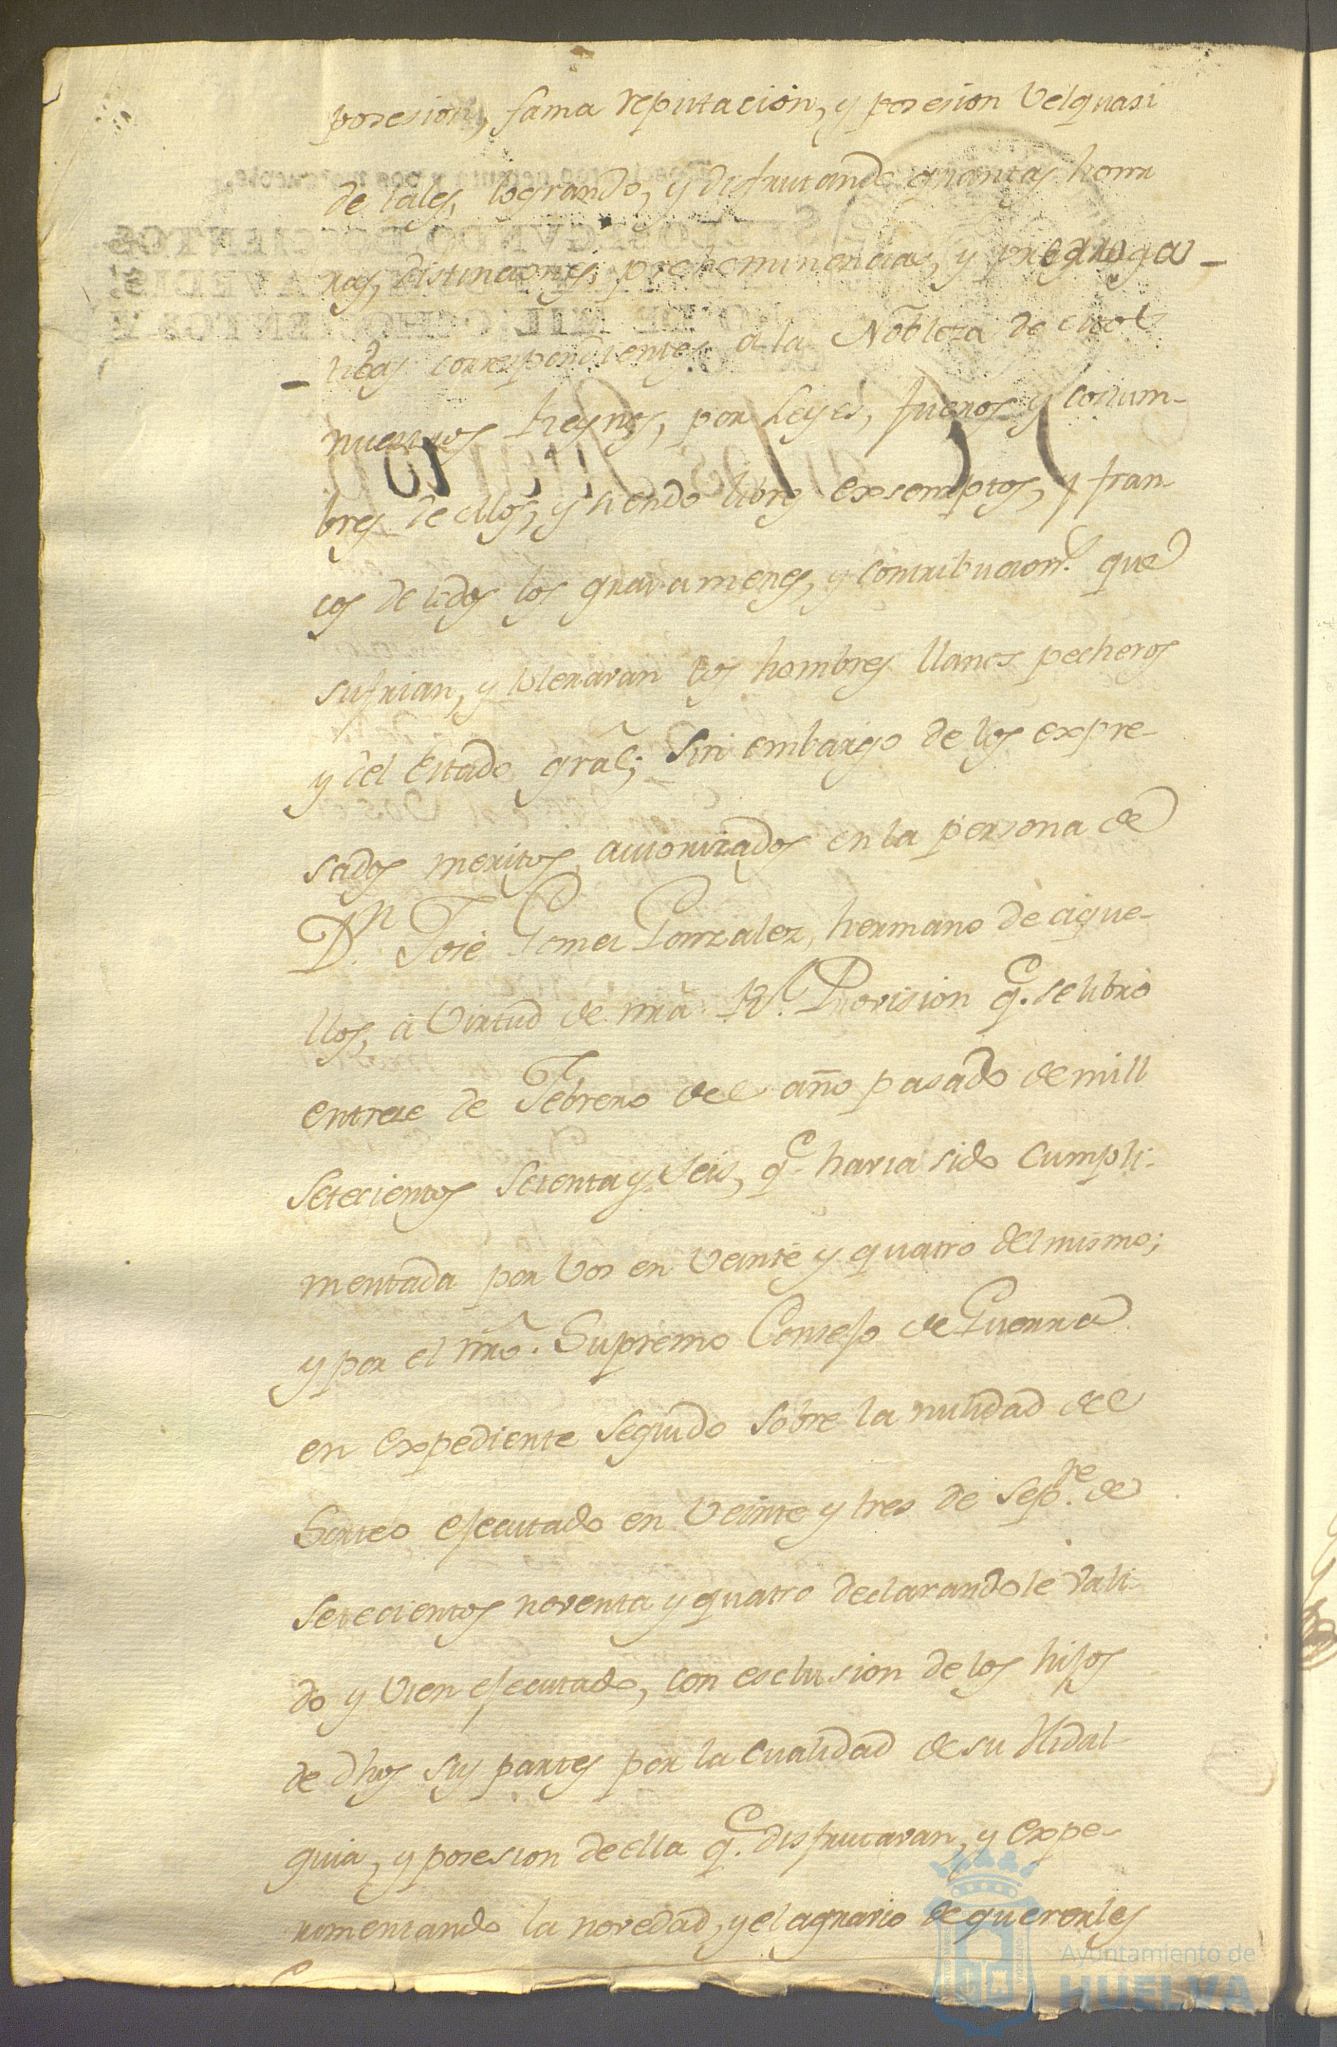 posesion, fama reputacion, y posesion Velquasi
de tales, logrando, y disfrutando quantas honrra
ras, distinciones, prehominencias, y prerroga-
tibas correspondientes a la Nobleza de
nuestros Reynos, por Leyes, fueros y costum-
bres de ellos, y siendo libres exsemptos, y fran-
cos de todos los gravamenes, y contribucion.s que
sufrian, y toleravan los hombres llanos pecheros
y del Estado gral; Sin embargo de los expre-
sados meritos autorizados en la persona de
Dn. José Gomez Gonzalez, hermano de aque-
llos, a Virtud de nra. Rl. Provision q.e se libró
entrese de Febrero del año pasado de mill
setecientos setenta y Seis, q.e havia sido cumpli-
mentada por Vos en Veinte y quatro del mismo;
y por el nro. Supremo Consejo de Guerra
en expediente seguido sobre la nulidad del
Sorteo ejecutado en Veinte y tres de Sep.re de
setecientos noventa y quatro declarandole Vali-
do y Vien ejecutado, con esclusion de los hijos
de dhos sus partes por la cualidad de su Hidal-
guia, y posesion de ella q.e disfrutavan, y expe-
rimentando la novedad, y el agravio de quererles
Ayuntamiento de
HUELVA